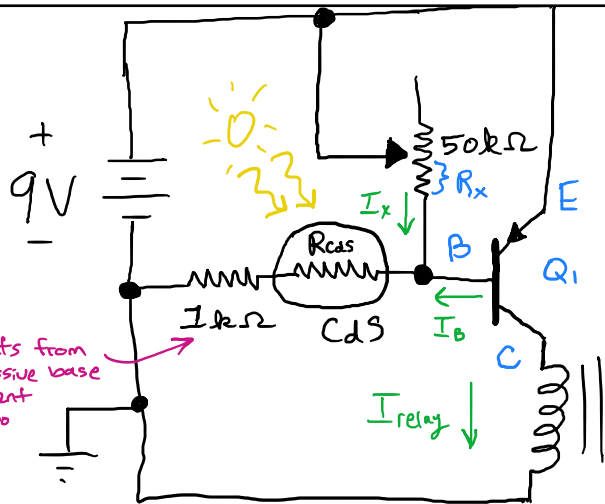 +
9V
−
50kΩ
Rx
Ix
E
B
Q1
Rcds
IB
1kΩ
CdS
C
ts from
sive base
ent
Irelay